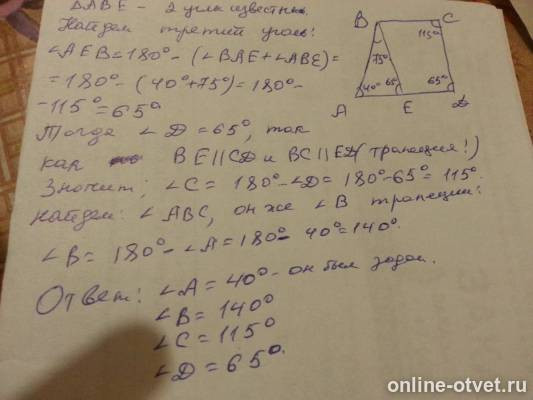 ΔABE - 2 угла известны.
Найдем третий угол:
∠AEB = 180° - (∠BAE + ∠ABE) =
= 180° - (40° + 75°) = 180° -
- 115° = 65°
Тогда ∠D = 65°, так
как BE || CD и BC || ED (трапеция!)
Значит; ∠C = 180° - ∠D = 180° - 65° = 115°
Найдем: ∠ABC, он же ∠B трапеции:
∠B = 180° - ∠A = 180° - 40° = 140°.
Ответ: ∠A = 40° - он был задан.
∠B = 140°
∠C = 115°
∠D = 65°.
B C
115°
75°
40° 65° 65°
A E D
online-otvet.ru